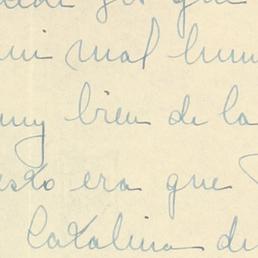 que
mi mal hum
muy bien de la
esto era que
Catalina de